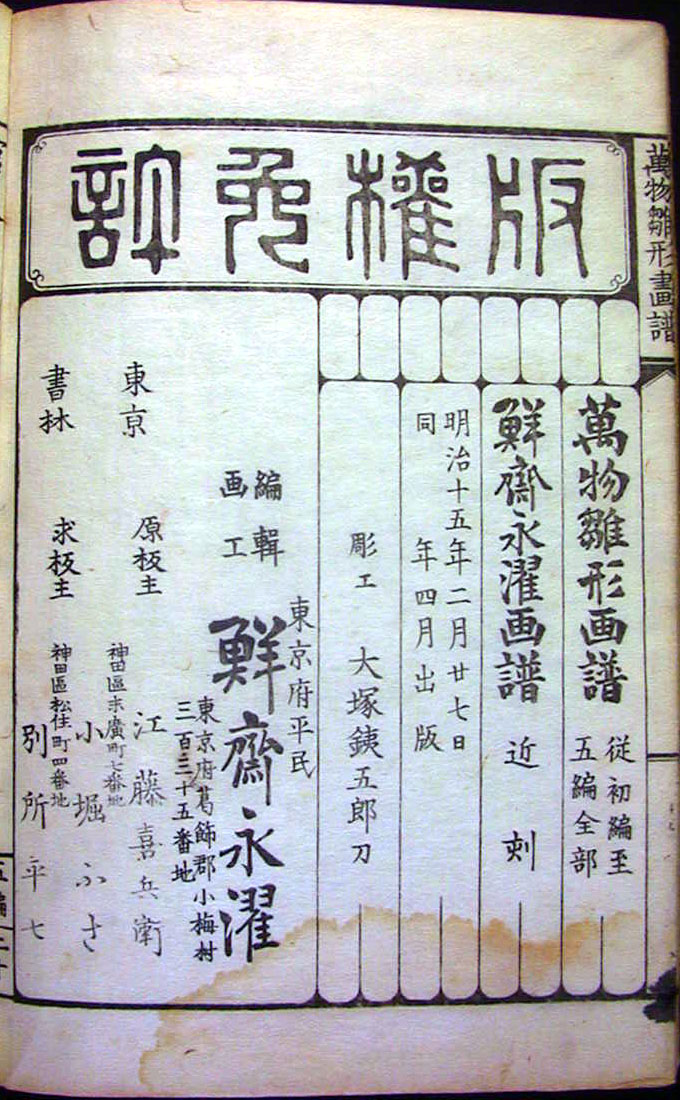 版權免許
萬物雛形畫譜
萬物雛形画譜
従初編至
五編全部
鮮齋永濯画譜 近刻
明治十五年二月廿七日
同 年四月出版
彫工 大塚銕五郎刀
東京府平民
編輯
画工
鮮齋永濯
東京府葛飾郡小梅村
三百三十五番地
東京
原板主
江藤喜兵衛
神田區末廣町七番地
小堀ふさ
書林
求板主
神田區松住町四番地
別所平七
五編